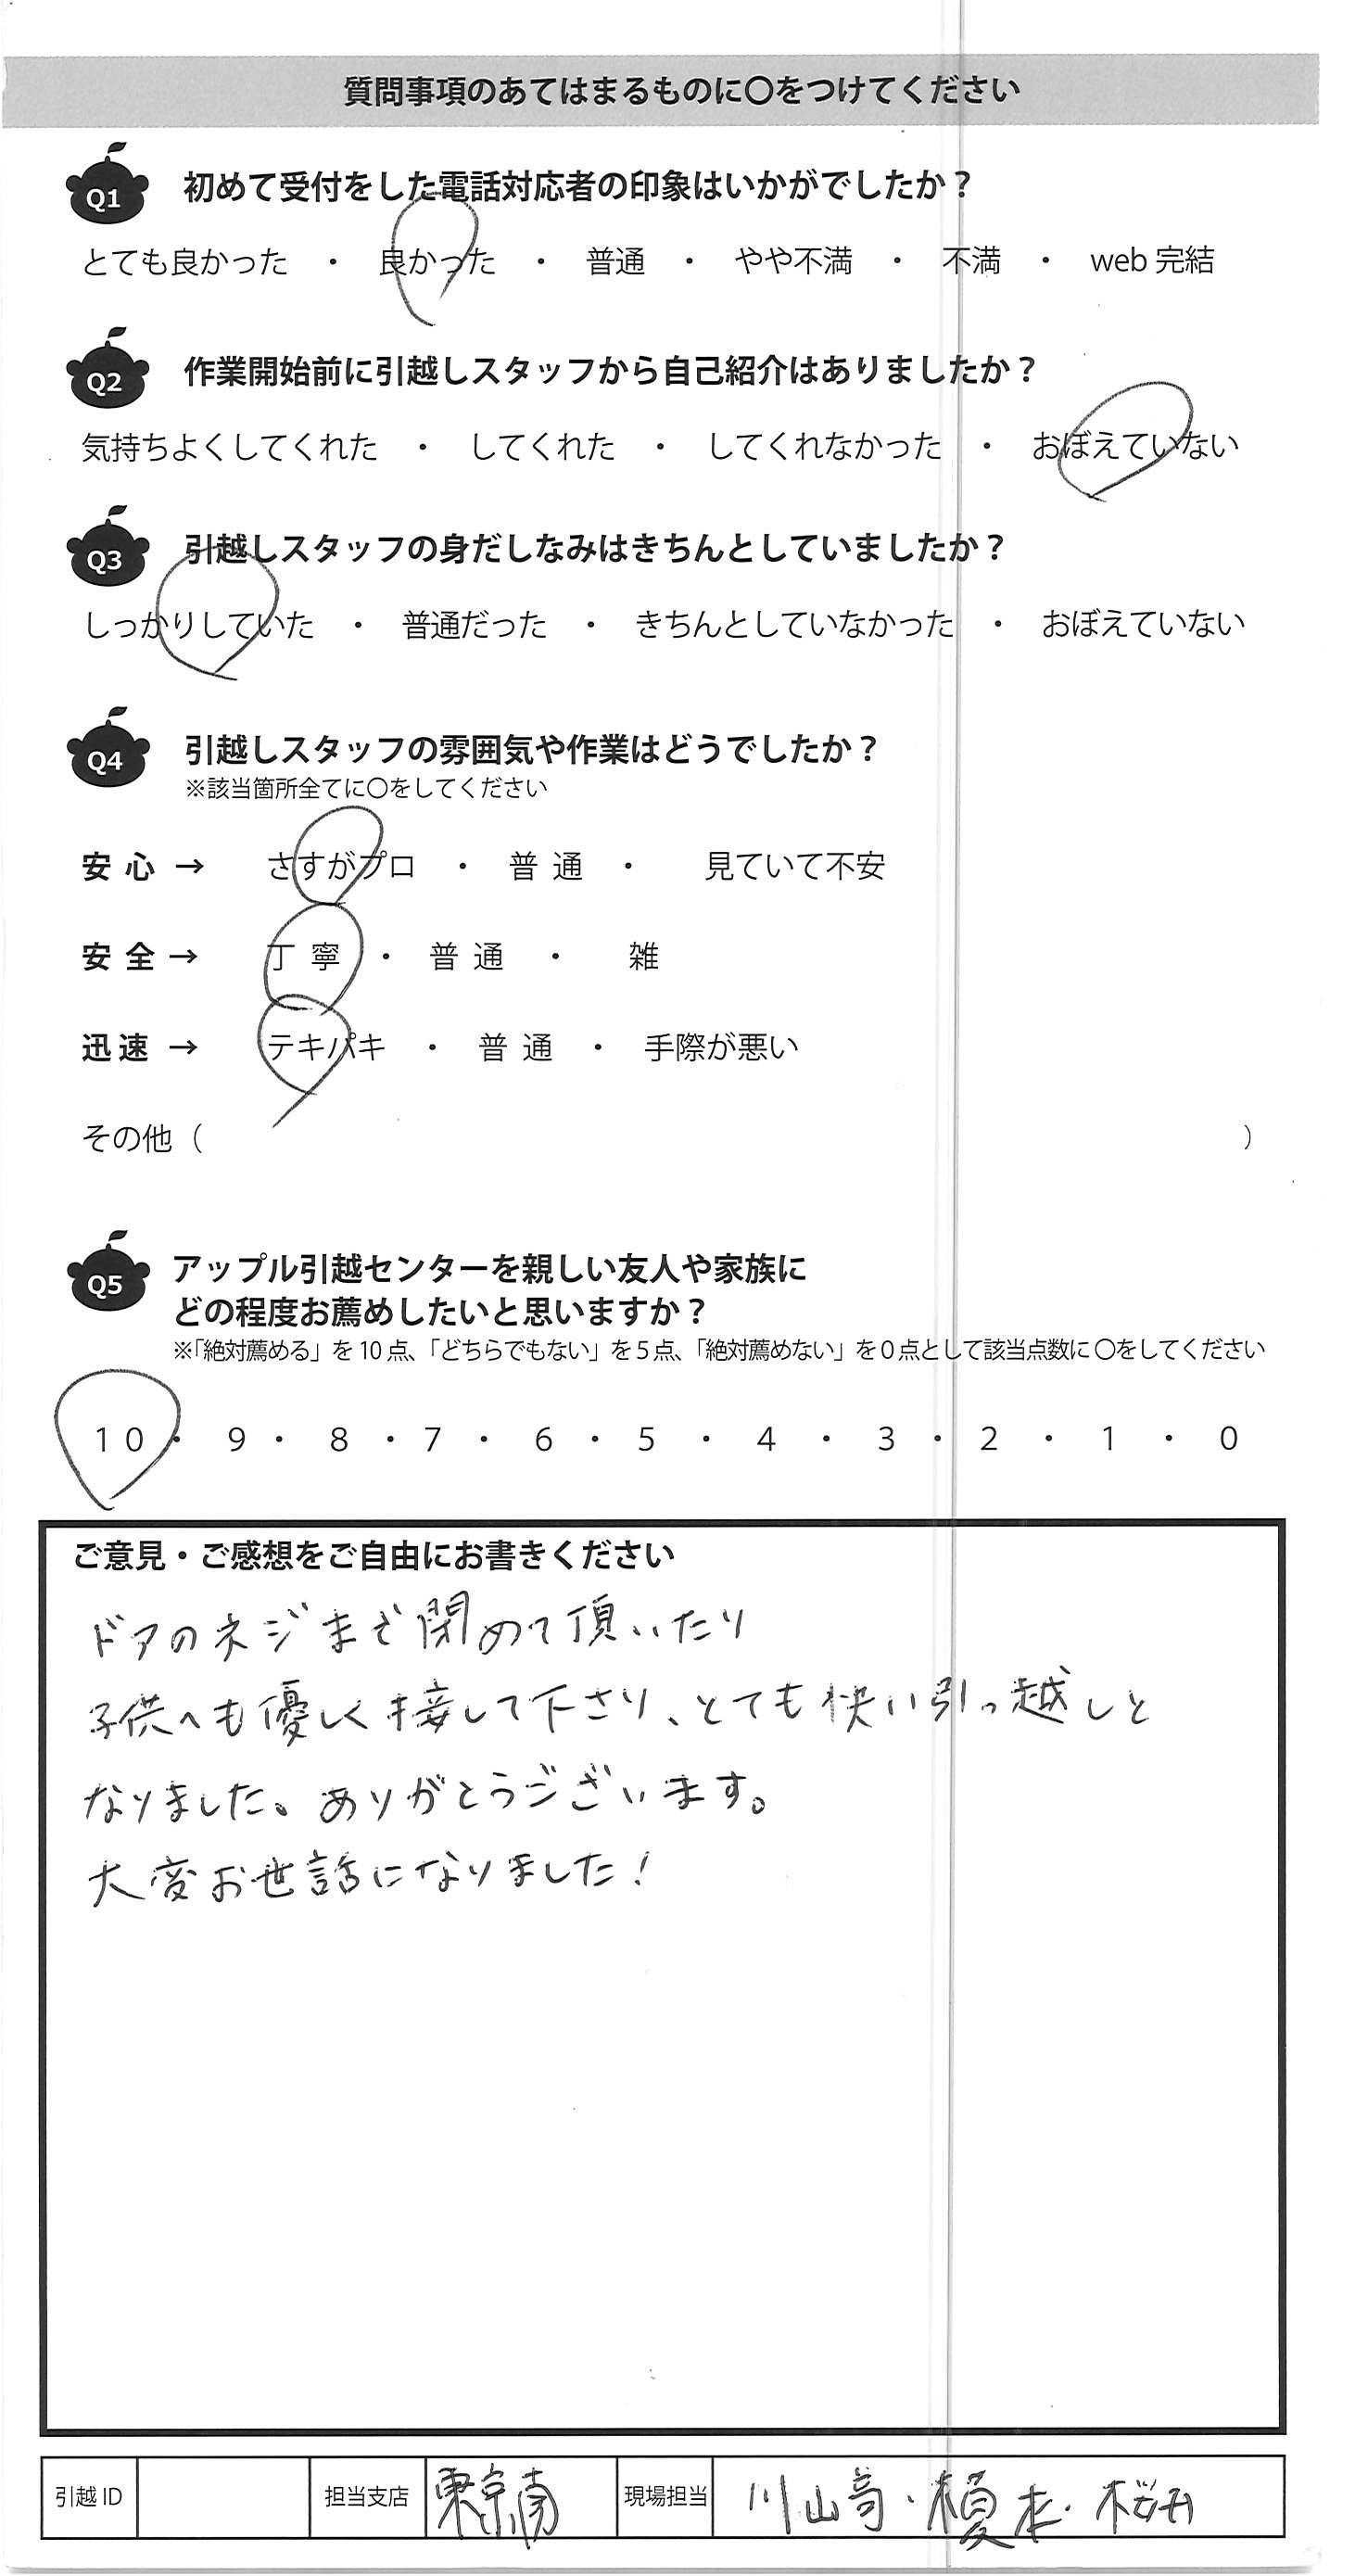 質問事項のあてはまるものに〇をつけてください
Q1 初めて受付をした電話対応者の印象はいかがでしたか？
とても良かった ・ 良かった ・ 普通 ・ やや不満 ・ 不満 ・ web 完結
Q2 作業開始前に引越しスタッフから自己紹介はありましたか？
気持ちよくしてくれた ・ してくれた ・ してくれなかった ・ おぼえていない
Q3 引越しスタッフの身だしなみはきちんとしていましたか？
しっかりしていた ・ 普通だった ・ きちんとしていなかった ・ おぼえていない
Q4 引越しスタッフの雰囲気や作業はどうでしたか？
※該当箇所全てに〇をしてください
安心 → さすがプロ ・ 普通 ・ 見ていて不安
安全 → 丁寧 ・ 普通 ・ 雑
迅速 → テキパキ ・ 普通 ・ 手際が悪い
その他（ ）
Q5 アップル引越センターを親しい友人や家族に
どの程度お薦めしたいと思いますか？
※「絶対薦める」を10点、「どちらでもない」を5点、「絶対薦めない」を0点として該当点数に〇をしてください
10 ・ 9 ・ 8 ・ 7 ・ 6 ・ 5 ・ 4 ・ 3 ・ 2 ・ 1 ・ 0
ご意見・ご感想をご自由にお書きください
ドアのネジまで閉めて頂いたり
子供へも優しく接して下さり、とても快い引っ越しと
なりました。ありがとうございます。
大変お世話になりました！
引越ID 担当支店 東京南 現場担当 川崎・榎本・桜井